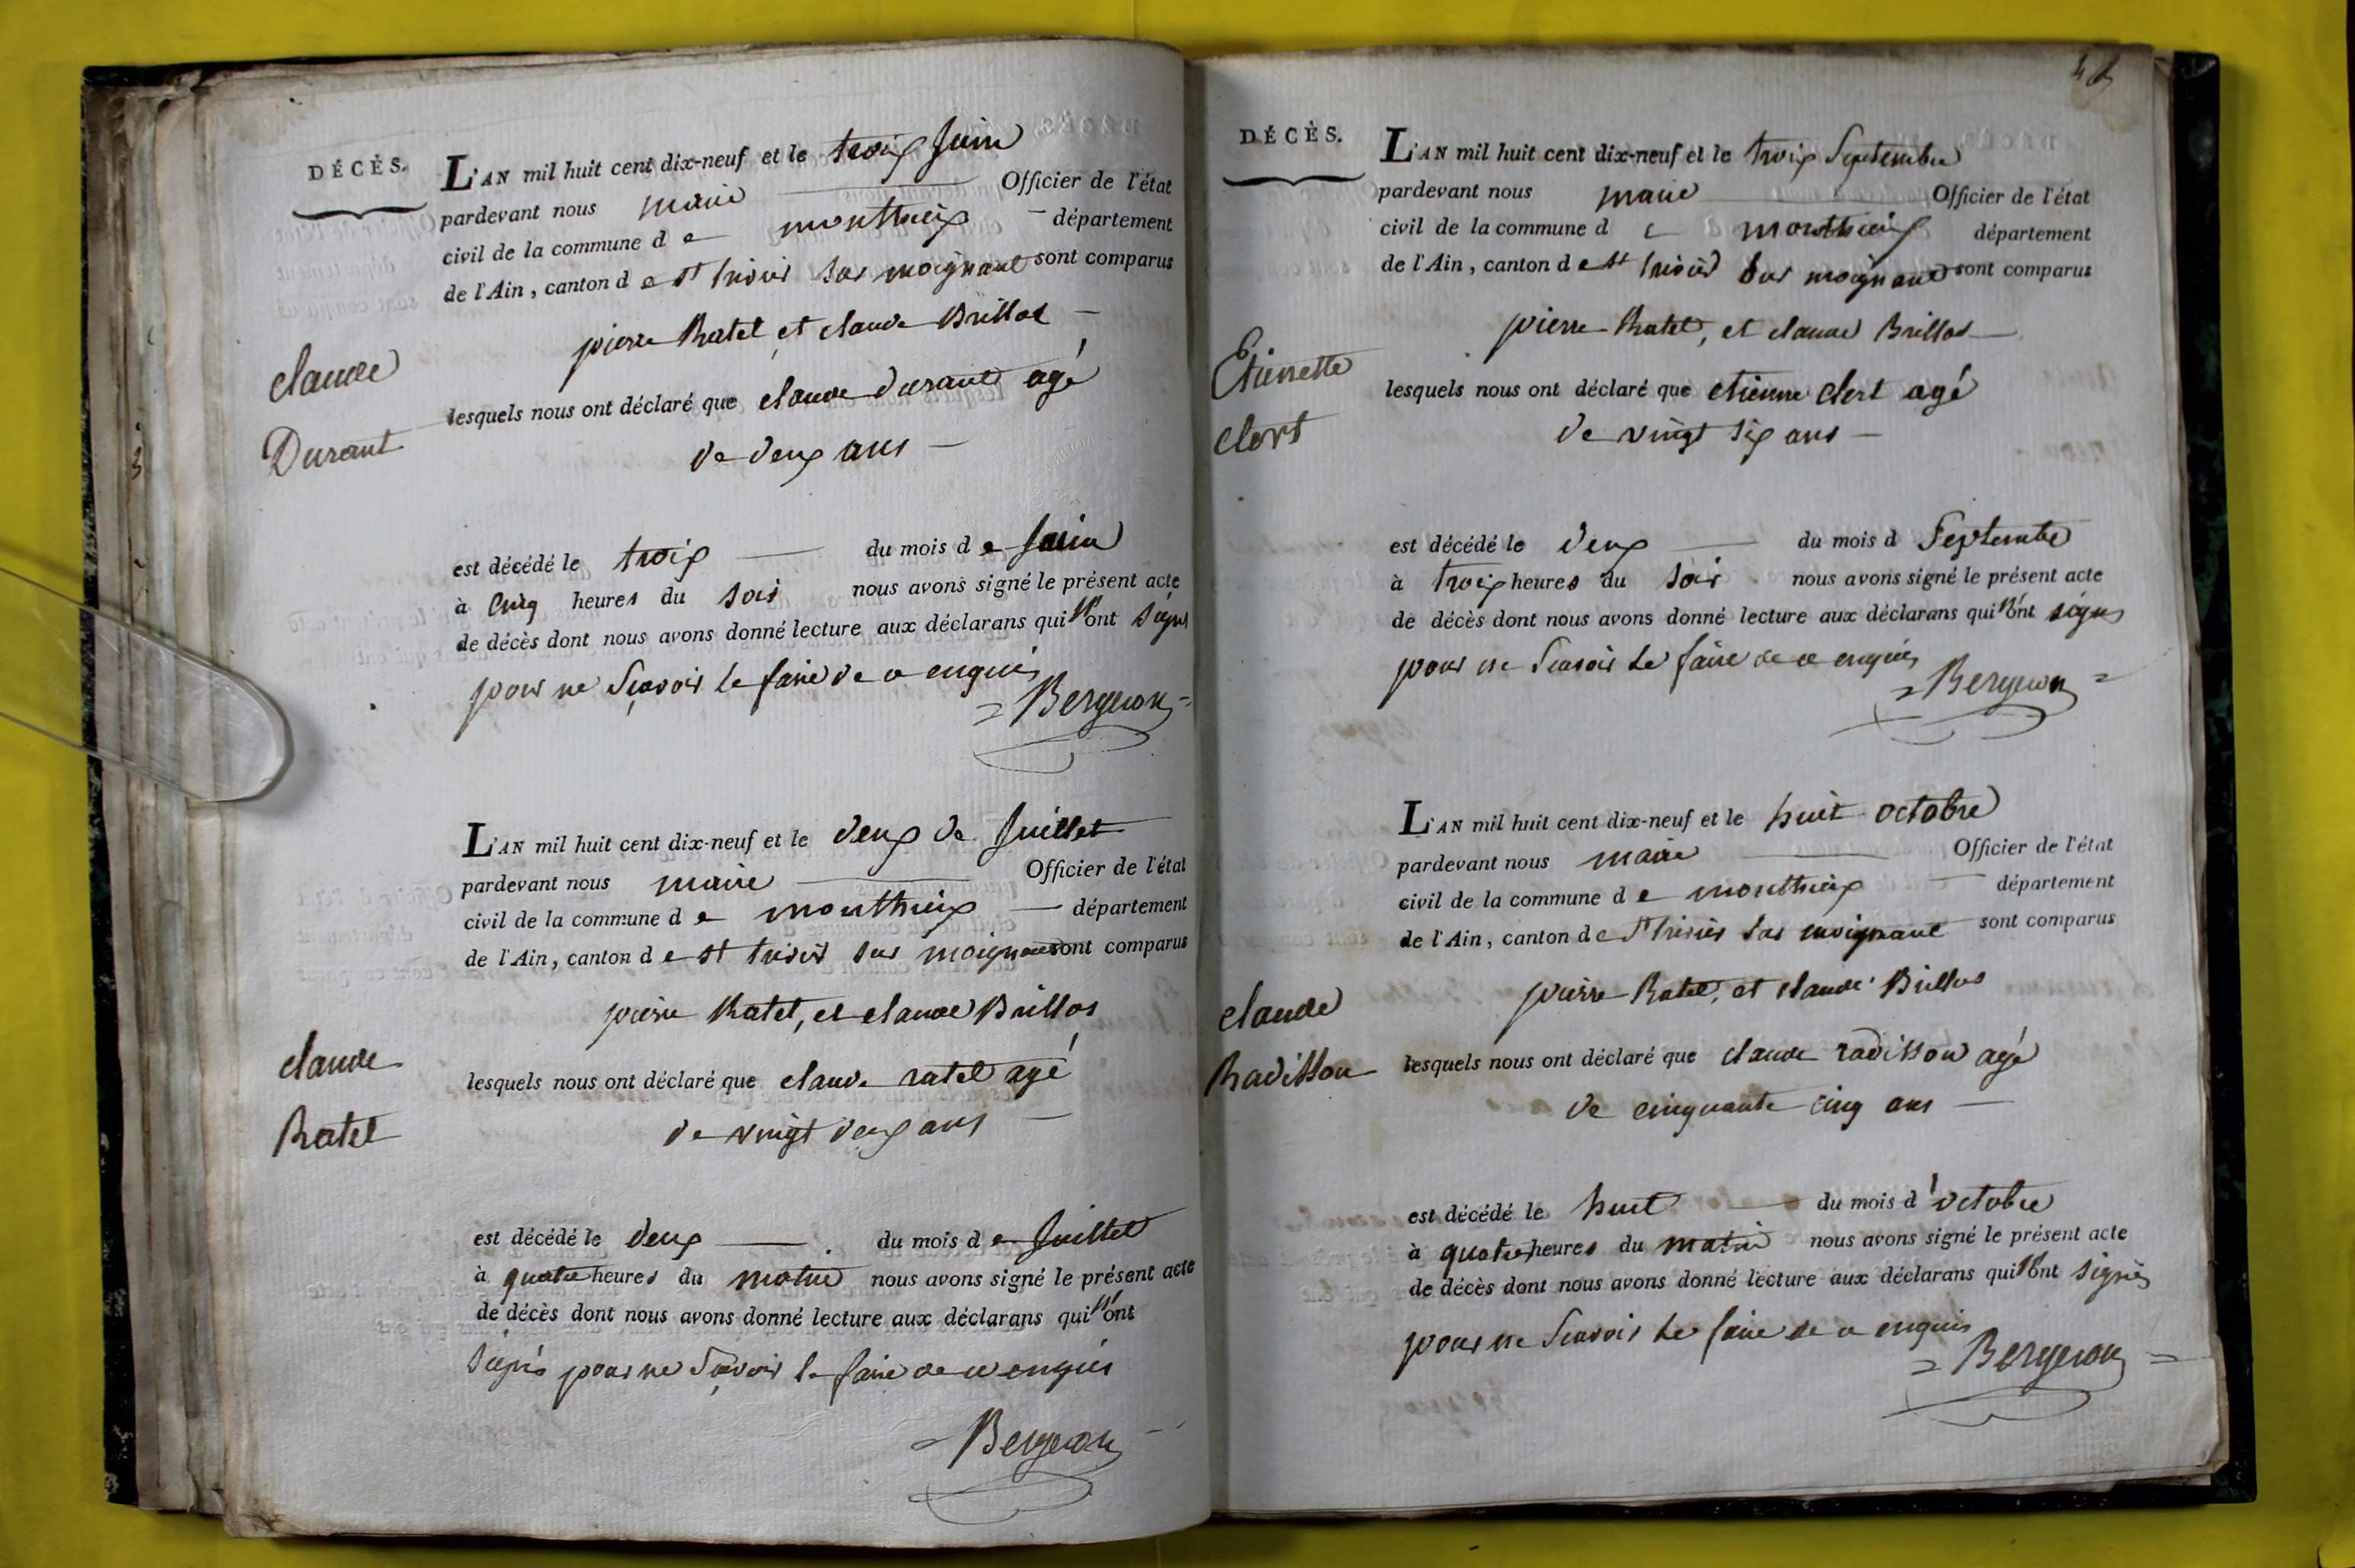 DÉCÈS.
L'AN mil huit cent dix-neuf et le troix Juin
pardevant nous maire Officier de l'état
civil de la commune d e monthieux département
de l'Ain, canton d e st trivier sur moignans sont comparus
pierre Ratel et claude Brillat
claude
Durant
lesquels nous ont déclaré que claude durant agé
de deux ans
est décédé le troix du mois d e Juin
à cinq heures du soir nous avons signé le présent acte
de décès dont nous avons donné lecture aux déclarans qui n'ont signé
pour ne sçavoir le faire de ce enquis
= Bergeron =
L'AN mil huit cent dix-neuf et le deux de Juillet
pardevant nous maire Officier de l'état
civil de la commune d e monthieux département
de l'Ain, canton d e st trivier sur moignans sont comparus
pierre Ratel, et claude Brillat
claude
Ratel
lesquels nous ont déclaré que claude ratel agé
de vingt deux ans
est décédé le deux du mois d e Juillet
à quatre heures du matin nous avons signé le présent acte
de décès dont nous avons donné lecture aux déclarans qui n'ont
signés pour ne sçavoir le faire de ce enquis
= Bergeron
DÉCÈS.
L'AN mil huit cent dix-neuf et le troix Septembre
pardevant nous maire Officier de l'état
civil de la commune d e monthieux département
de l'Ain, canton d e st trivier sur moignans sont comparus
pierre Ratel, et claude Brillat
Etiennette
clert
lesquels nous ont déclaré que etienne clert agé
de vingt six ans
est décédé le deux du mois d Septembre
à troix heures du soir nous avons signé le présent acte
de décès dont nous avons donné lecture aux déclarans qui n'ont signés
pour ne scavoir le faire de ce enquis
= Bergeron =
L'AN mil huit cent dix-neuf et le huit octobre
pardevant nous maire Officier de l'état
civil de la commune d e monthieux département
de l'Ain, canton d e st trivier sur moignans sont comparus
pierre Ratel, et claude Brillat
claude
Radisson
lesquels nous ont déclaré que claude radisson agé
de cinquante cinq ans
est décédé le huit du mois d'octobre
à quatre heures du matin nous avons signé le présent acte
de décès dont nous avons donné lecture aux déclarans qui n'ont signés
pour ne scavoir le faire de ce enquis
= Bergeron =